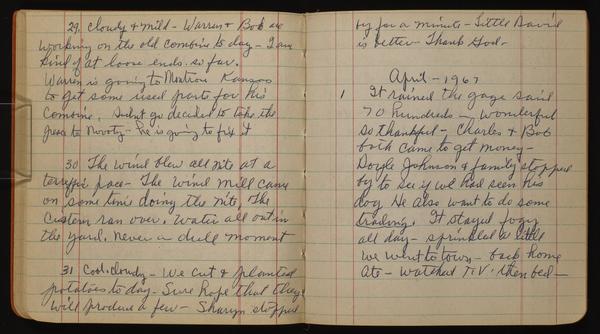 29. Cloudy & mild - Warren & Bob are
working on the old combine to day - I am
kind of at loose ends. so far.
Warren is going to Montrou Kansas
to get some used parts for his
combine. Didnt go decided to take the
gears to - he is going to fix it
30 The wind blew all nite at a
terrific pace - The wind mill came
on some time doing the nite, The
Cistern ran over. Water all out in
the yard. Never a dull moment
31 Cool, cloudy - We cut & planted
potatoes to day. Sure hope that they
will produce a few - Sharyn stopped
by for a minute - Little David
is better - Thank God -
April - 1967
1 It rained the gage said
70 hundreds - wonderful
so thankful - Charles & Bob
both came to get money -
Doyle Johnson & family stopped
by to see if we had seen his
dog. He also want to do some
trading. It stayed fogy
all day - sprinkled a little
We went to town - back home
Ate - watched T.V. then bed -